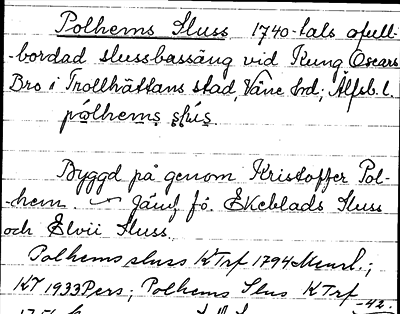 Polhems Sluss, 1740-tals ofull-
-bordad slussbassäng vid Kung Oscars
Bro i Trollhättans stad, Väne hd; Älfsb. l.
pólhems slús.
Byggd på genom Kristoffer Pol-
-hem. – Jämf fö. Ekeblads Sluss
och Elvii Sluss.
Polhems sluss KTrf 1794 Meurl.;
KT 1933 Pers; Polhems Slus KTrf
-42.